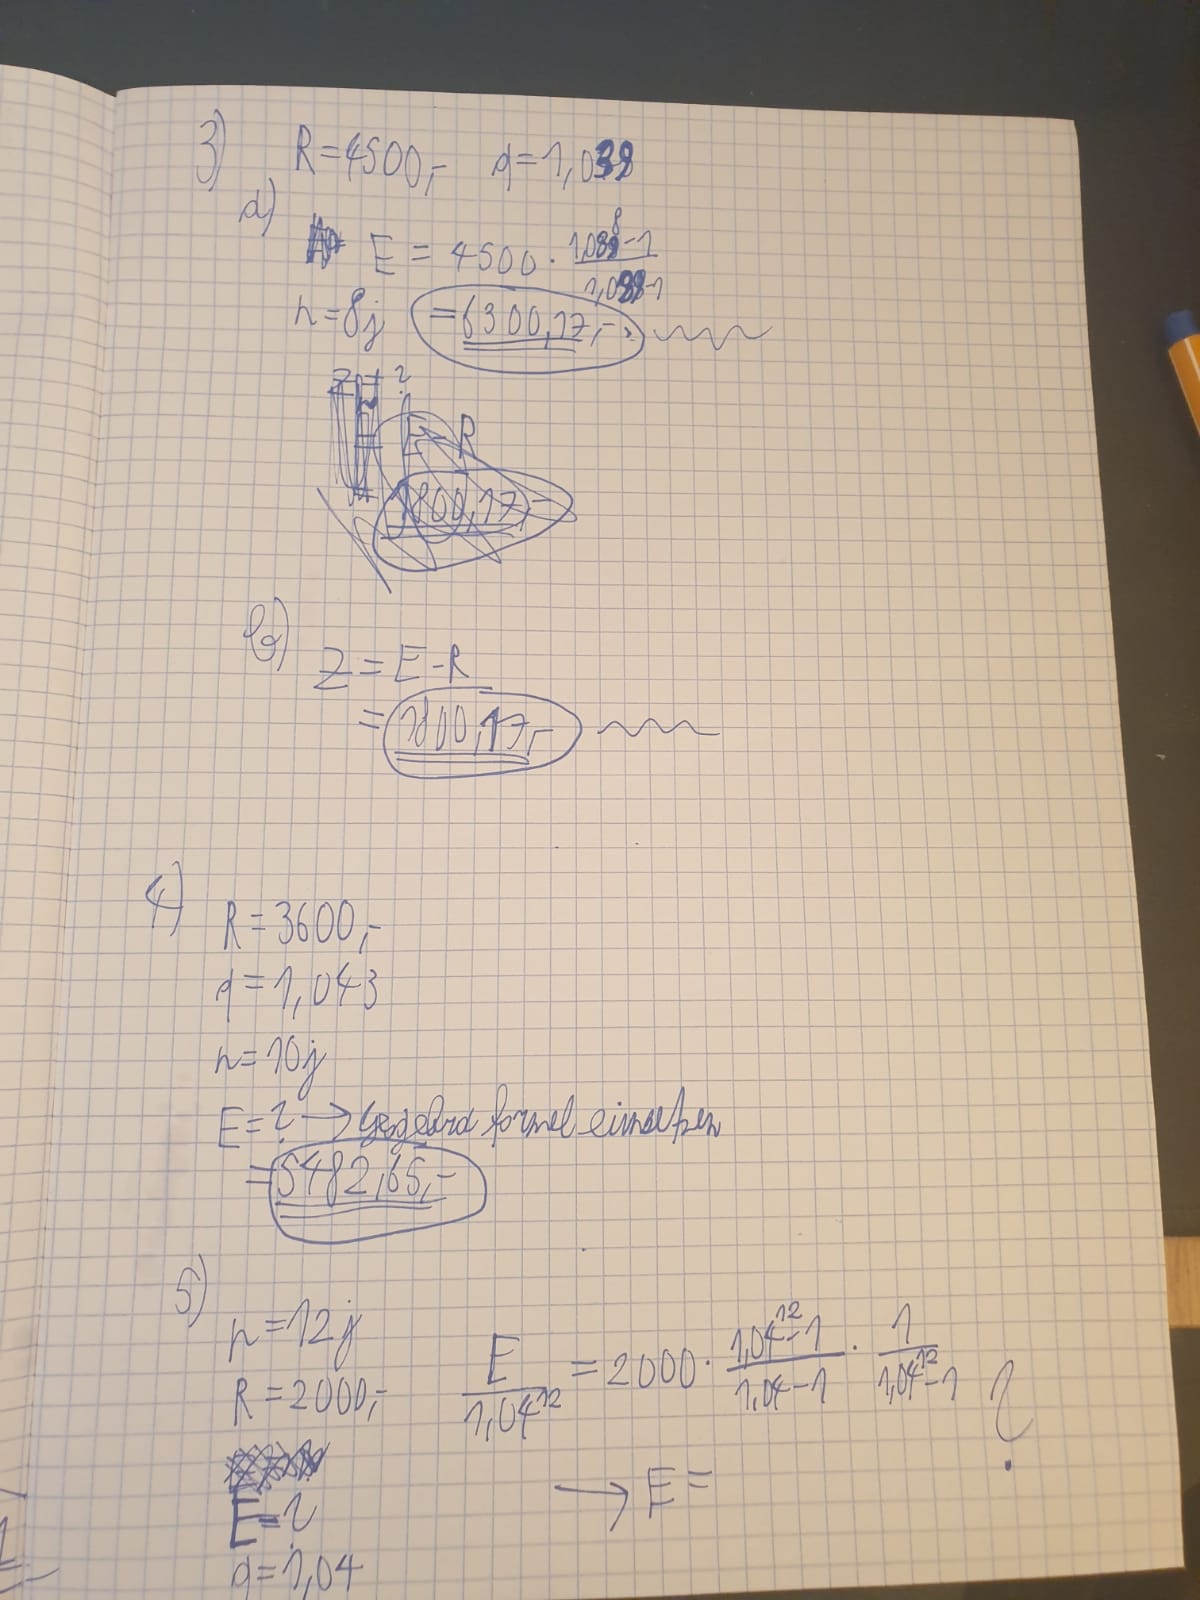 3) R=4500,- q=1,038
a)
E = 4500 · (1,038^8-1)/(1,038-1)
n=8j =6300,17,-
Z=?
E-R
1800,17,-
b)
Z=E-R
=1800,17,-
4)
R=3600,-
q=1,043
n=10j
E=? → formel einsetzen
=5482,65,-
5)
n=12j
R=2000,-
E/1,04^12 = 2000 · (1,04^12-1)/(1,04-1) · 1/(1,04^12-1) ?
→ E=
E=?
q=1,04